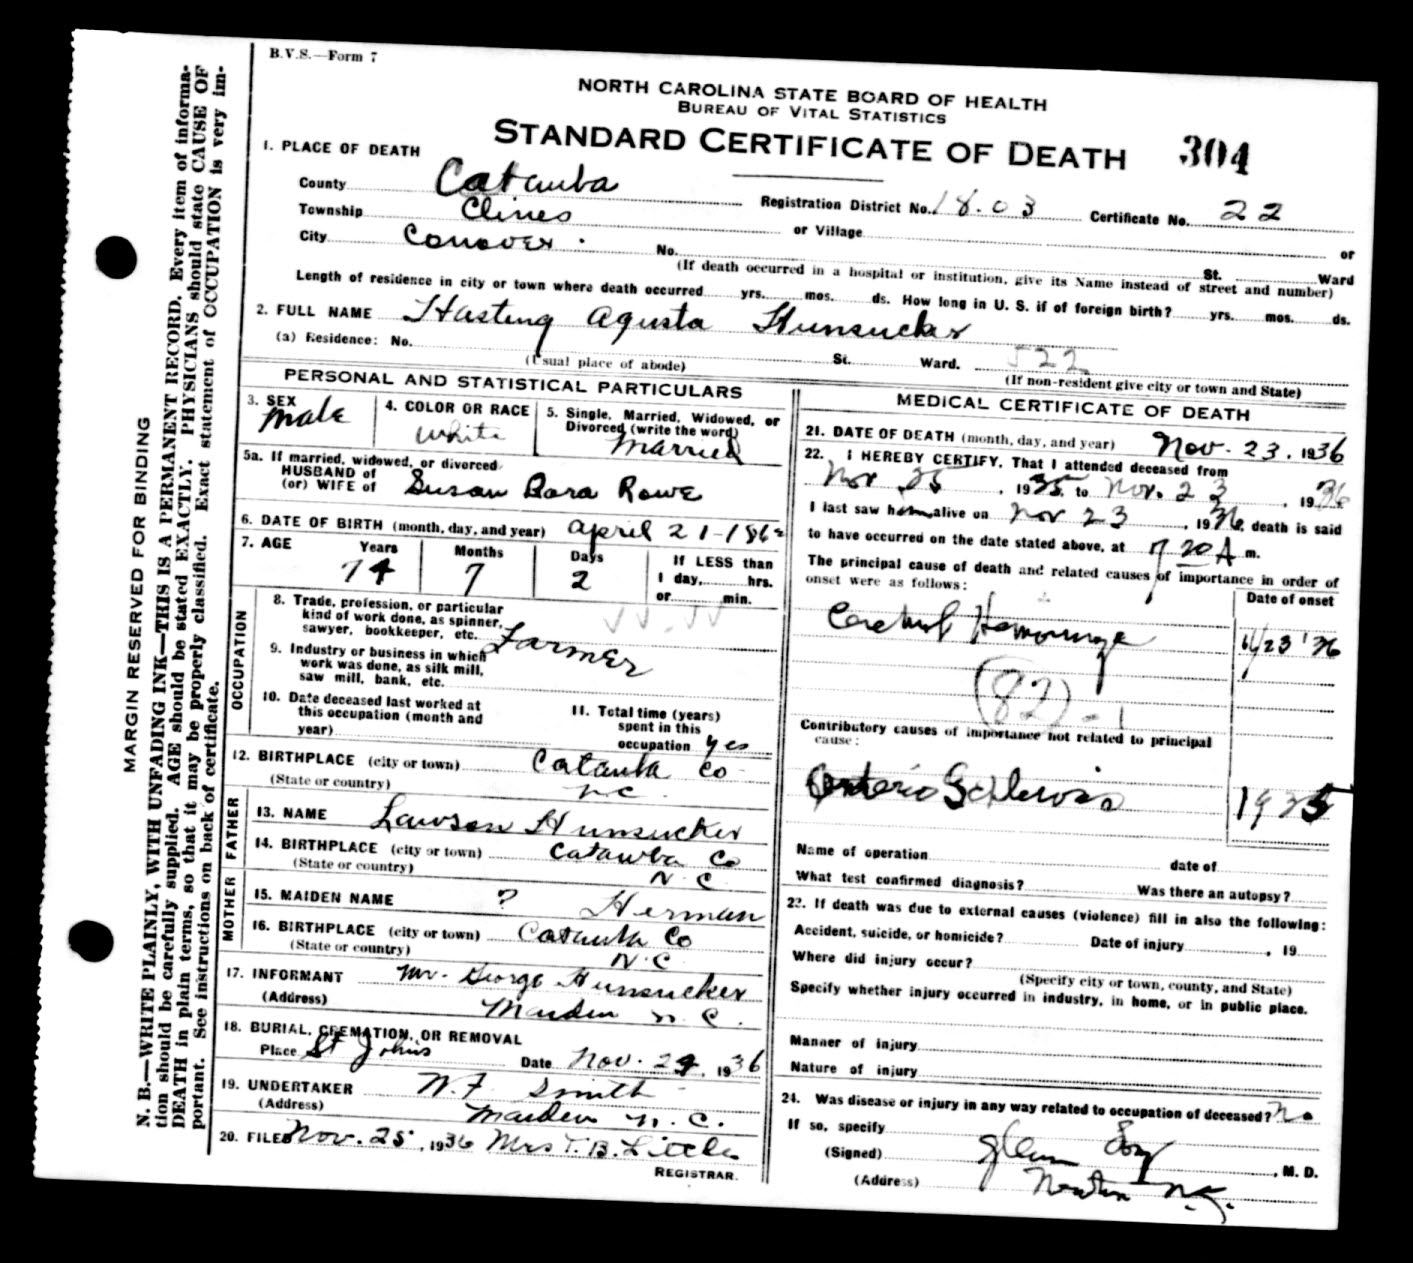 B.V.S.—Form 7
NORTH CAROLINA STATE BOARD OF HEALTH
BUREAU OF VITAL STATISTICS
STANDARD CERTIFICATE OF DEATH 304
1. PLACE OF DEATH
County Catauba
Registration District No. 18.03 Certificate No. 22
Township Clines or Village or
City Conover. No. St. Ward
(If death occurred in a hospital or institution, give its Name instead of street and number)
Length of residence in city or town where death occurred yrs. mos. ds. How long in U. S. if of foreign birth? yrs. mos. ds.
2. FULL NAME Hasting Agusta Hunsucker
(a) Residence: No. St. Ward. 522
(Usual place of abode) (If non-resident give city or town and State)
PERSONAL AND STATISTICAL PARTICULARS
3. SEX male
4. COLOR OR RACE white
5. Single, Married, Widowed, or
Divorced (write the word)
Married
5a. If married, widowed, or divorced
HUSBAND of
(or) WIFE of Susan Bara Rowe
6. DATE OF BIRTH (month, day, and year) April 21-1862
7. AGE Years Months Days If LESS than
74 7 2 1 day, hrs.
or min.
OCCUPATION
8. Trade, profession, or particular
kind of work done, as spinner,
sawyer, bookkeeper, etc. Farmer
9. Industry or business in which
work was done, as silk mill,
saw mill, bank, etc.
10. Date deceased last worked at
this occupation (month and
year)
11. Total time (years)
spent in this
occupation yes
12. BIRTHPLACE (city or town) Catauba Co
(State or country) N C
FATHER
13. NAME Lawson Hunsucker
14. BIRTHPLACE (city or town) Catawba Co
(State or country) N. C
MOTHER
15. MAIDEN NAME ? Herman
16. BIRTHPLACE (city or town) Catauba Co
(State or country) N. C
17. INFORMANT Mr. George Hunsucker
(Address) Maiden N. C.
18. BURIAL, CREMATION, OR REMOVAL
Place St Johns Date Nov. 24, 1936
19. UNDERTAKER W. F. Smith
(Address) Maiden N. C.
20. FILED Nov. 25, 1936 Mrs T. B. Little
REGISTRAR.
MEDICAL CERTIFICATE OF DEATH
21. DATE OF DEATH (month, day, and year) Nov. 23, 1936
22. I HEREBY CERTIFY, That I attended deceased from
Nov 25, 1935, to Nov. 23, 1936
I last saw him alive on Nov 23, 1936, death is said
to have occurred on the date stated above, at 7 20 A m.
The principal cause of death and related causes of importance in order of
onset were as follows: Date of onset
Cerebral Hemorrage 11/23 '36
(82)-1
Contributory causes of importance not related to principal
cause:
Arterio Sclerosis 1935
Name of operation date of
What test confirmed diagnosis? Was there an autopsy?
23. If death was due to external causes (violence) fill in also the following:
Accident, suicide, or homicide? Date of injury , 19
Where did injury occur?
(Specify city or town, county, and State)
Specify whether injury occurred in industry, in home, or in public place.
Manner of injury
Nature of injury
24. Was disease or injury in any way related to occupation of deceased? No
If so, specify
(Signed) Glenn , M. D.
(Address) Newton N. C.
MARGIN RESERVED FOR BINDING
N. B.—WRITE PLAINLY, WITH UNFADING INK—THIS IS A PERMANENT RECORD. Every item of informa-
tion should be carefully supplied. AGE should be stated EXACTLY. PHYSICIANS should state CAUSE OF
DEATH in plain terms, so that it may be properly classified. Exact statement of OCCUPATION is very im-
portant. See instructions on back of certificate.